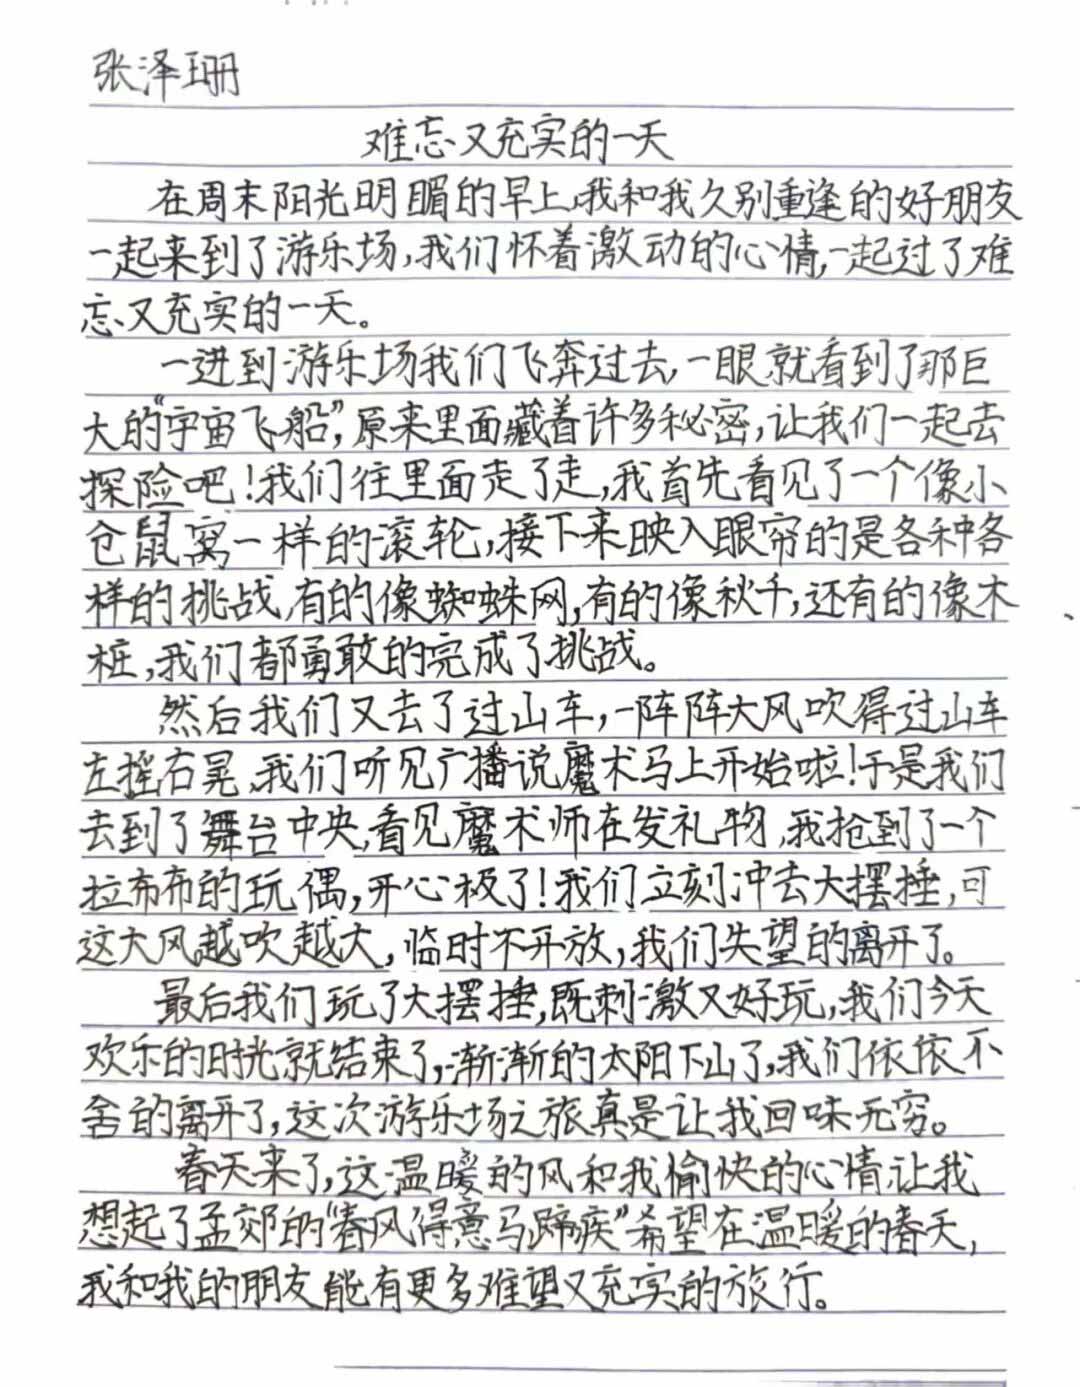 张泽珊
难忘又充实的一天
在周末阳光明媚的早上,我和我久别重逢的好朋友
一起来到了游乐场,我们怀着激动的心情,一起过了难
忘又充实的一天。
一进到游乐场我们飞奔过去,一眼就看到了那巨
大的“宇宙飞船”,原来里面藏着许多秘密,让我们一起去
探险吧!我们往里面走了走,我首先看见了一个像小
仓鼠窝一样的滚轮,接下来映入眼帘的是各种各
样的挑战,有的像蜘蛛网,有的像秋千,还有的像木
桩,我们都勇敢的完成了挑战。
然后我们又去了过山车,一阵阵大风吹得过山车
左摇右晃,我们听见广播说魔术马上开始啦!于是我们
去到了舞台中央,看见魔术师在发礼物,我抢到了一个
拉布布的玩偶,开心极了!我们立刻冲去大摆捶,可
这大风越吹越大,临时不开放,我们失望的离开了。
最后我们玩了大摆捶,既刺激又好玩,我们今天
欢乐的时光就结束了,渐渐的太阳下山了,我们依依不
舍的离开了,这次游乐场之旅真是让我回味无穷。
春天来了,这温暖的风和我愉快的心情,让我
想起了孟郊的“春风得意马蹄疾”希望在温暖的春天,
我和我的朋友能有更多难望又充实的旅行。